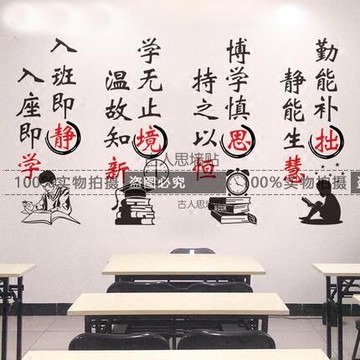 勤能补拙
静能生慧
博学慎思
持之以恒
学无止境
温故知新
入班即静
入座即学
古人思墙贴
100%实物拍摄 盗图必究 100%实物拍摄
古人思墙贴